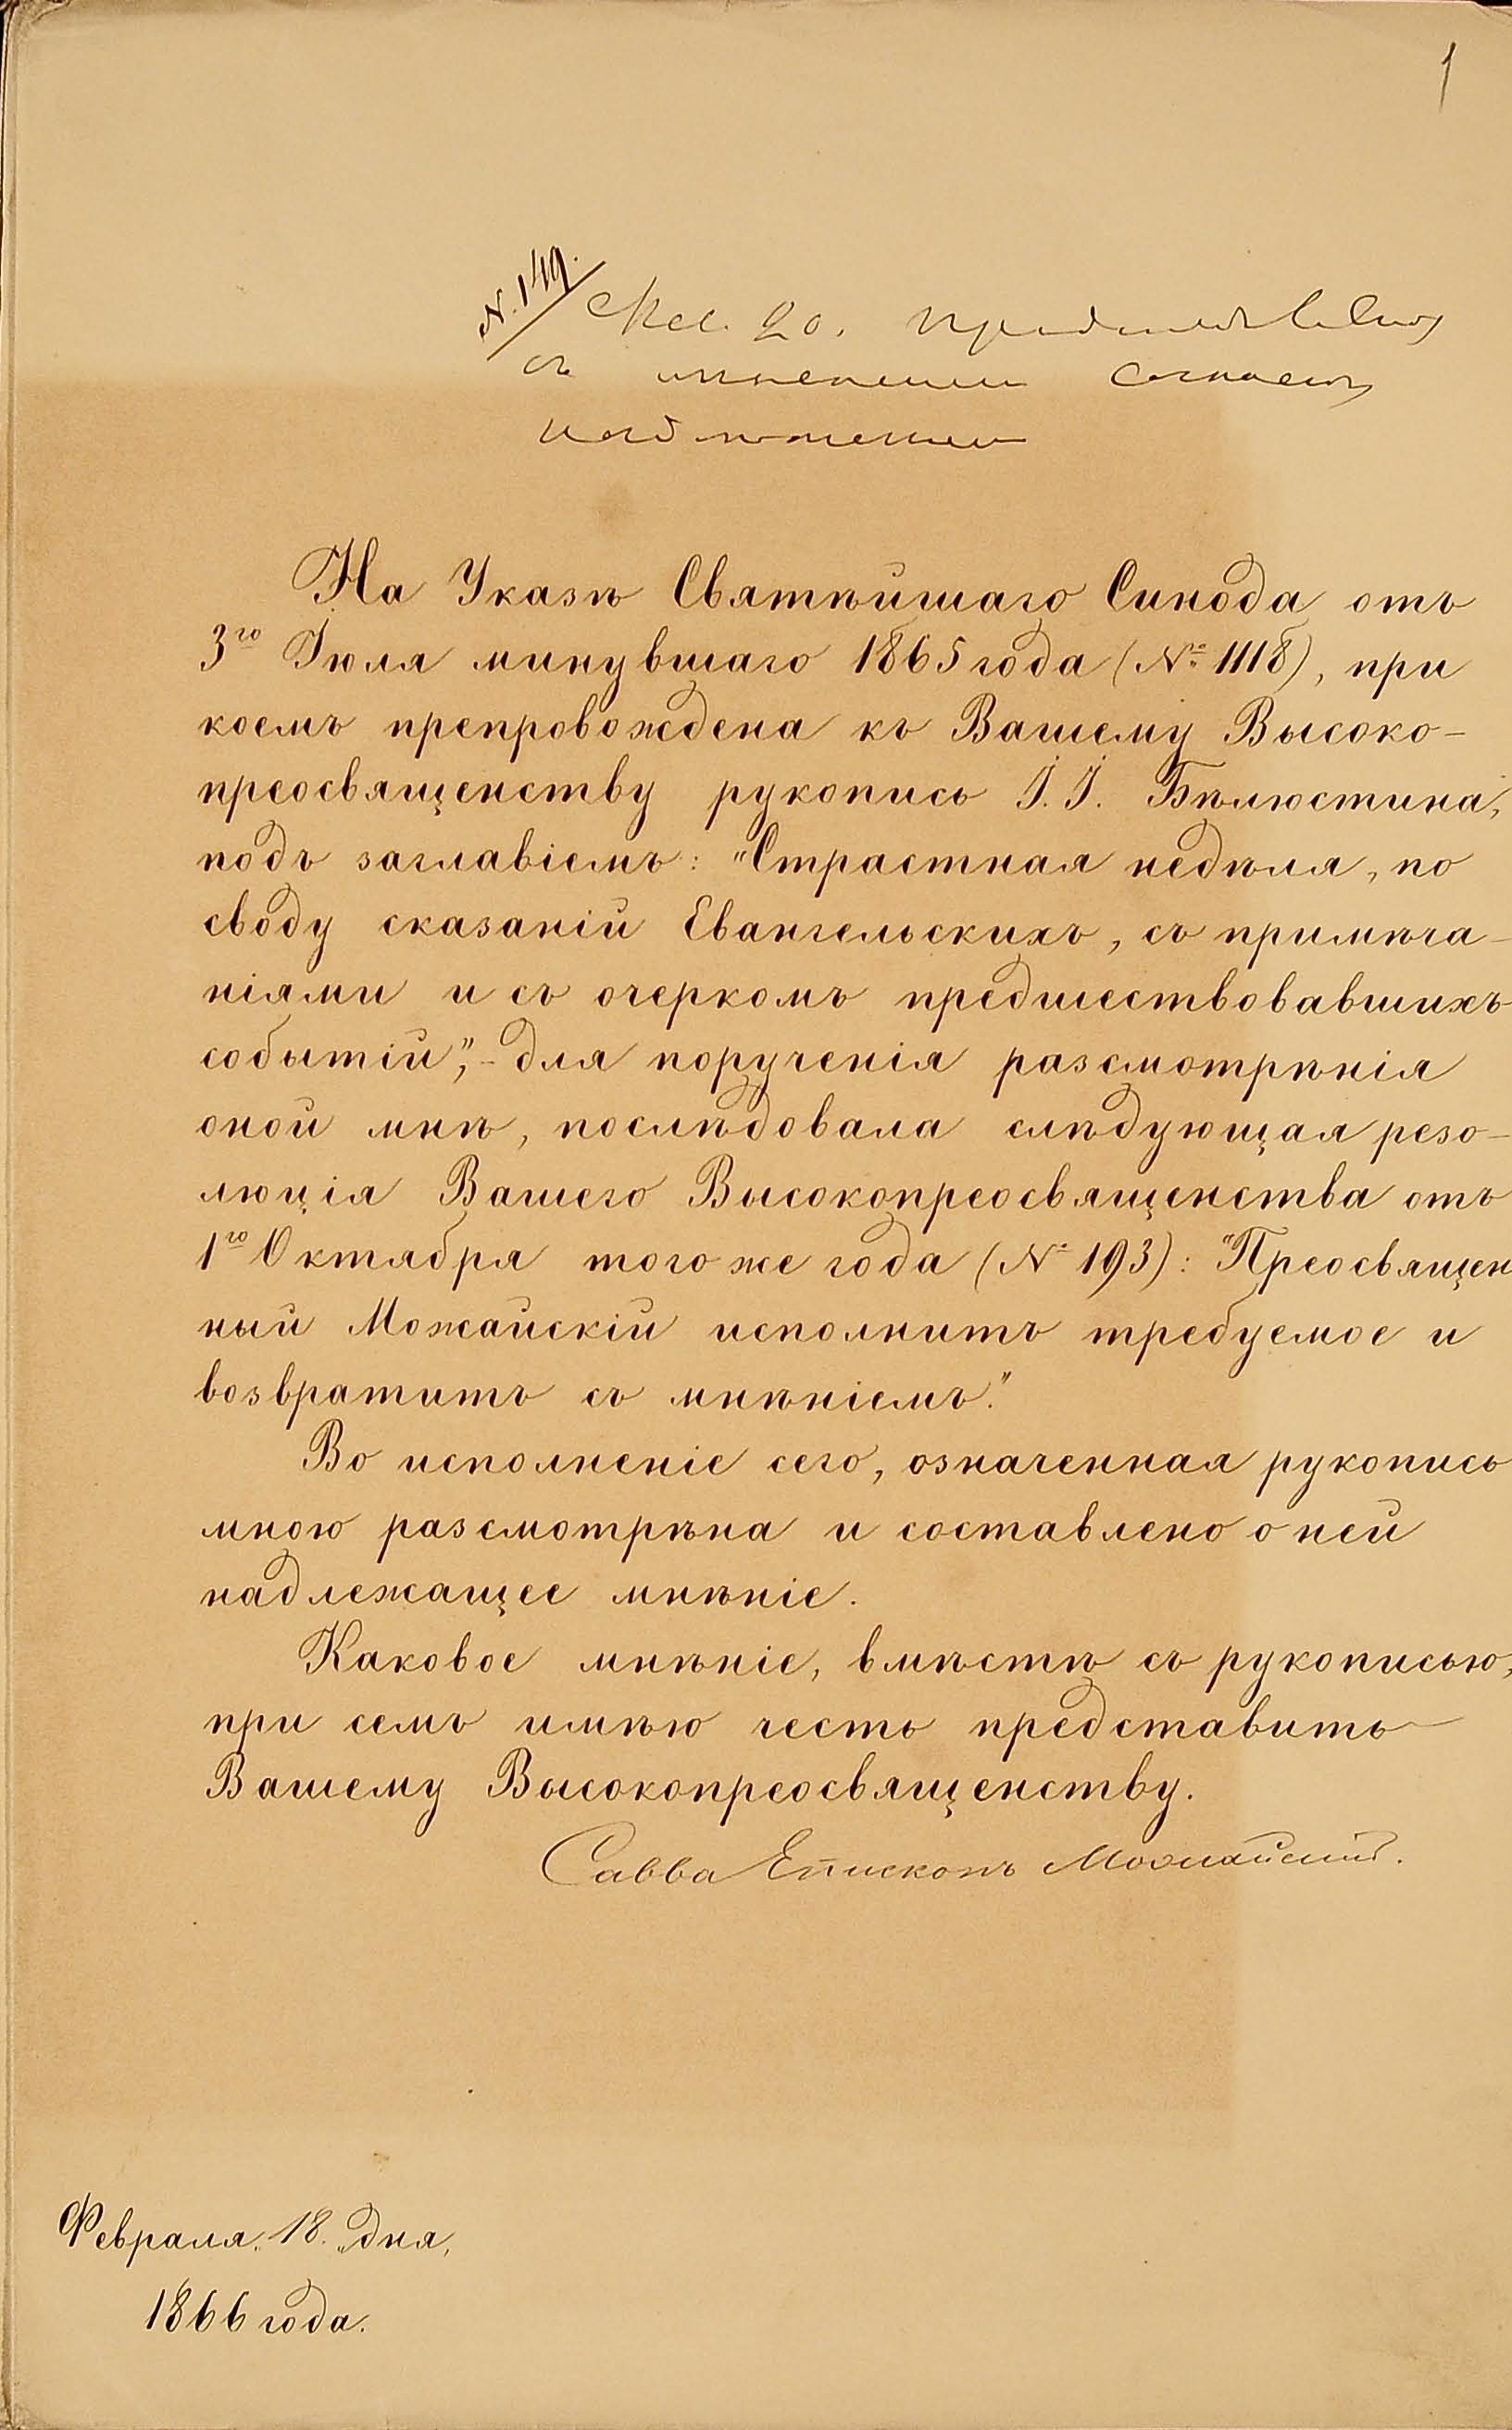 1
N. 149.
20.
съ мнениемъ
На Указѣ Святѣйшаго Синода отъ
3го Іюля минувшаго 1865 года (№ 1118), при
коемъ препровождена къ Вашему Высоко-
преосвященству рукопись І. І. Бѣлюстина,
подъ заглавіемъ: "Страстная недѣля, по
своду сказаній Евангельскихъ, съ примѣча-
ніями и съ очеркомъ предшествовавшихъ
событій", - для порученія разсмотрѣнія
оной мнѣ, послѣдовала слѣдующая резо-
люція Вашего Высокопреосвященства отъ
1го Октября того же года (№ 193): "Преосвящен
ный Можайскій исполнитъ требуемое и
возвратитъ съ мнѣніемъ."
Во исполненіе сего, означенная рукопись
мною разсмотрѣна и составлено о ней
надлежащее мнѣніе.
Каковое мнѣніе, вмѣстѣ съ рукописью,
при семъ имѣю честь представить
Вашему Высокопреосвященству.
Савва Епископъ Можайскій.
Февраля 18. дня,
1866 года.